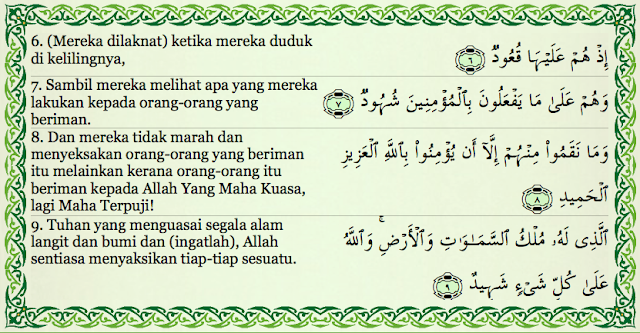 6. (Mereka dilaknat) ketika mereka duduk
di kelilingnya,
إِذْ هُمْ عَلَيْهَا قُعُودٌ ٦
7. Sambil mereka melihat apa yang mereka
lakukan kepada orang-orang yang
beriman.
وَهُمْ عَلَىٰ مَا يَفْعَلُونَ بِالْمُؤْمِنِينَ شُهُودٌ ٧
8. Dan mereka tidak marah dan
menyeksakan orang-orang yang beriman
itu melainkan kerana orang-orang itu
beriman kepada Allah Yang Maha Kuasa,
lagi Maha Terpuji!
وَمَا نَقَمُوا۟ مِنْهُمْ إِلَّآ أَن يُؤْمِنُوا۟ بِاللَّهِ الْعَزِيزِ
الْحَمِيدِ ٨
9. Tuhan yang menguasai segala alam
langit dan bumi dan (ingatlah), Allah
sentiasa menyaksikan tiap-tiap sesuatu.
الَّذِى لَهُۥ مُلْكُ السَّمَـٰوَٰتِ وَالْأَرْضِ ۚ وَاللَّهُ
عَلَىٰ كُلِّ شَىْءٍ شَهِيدٌ ٩